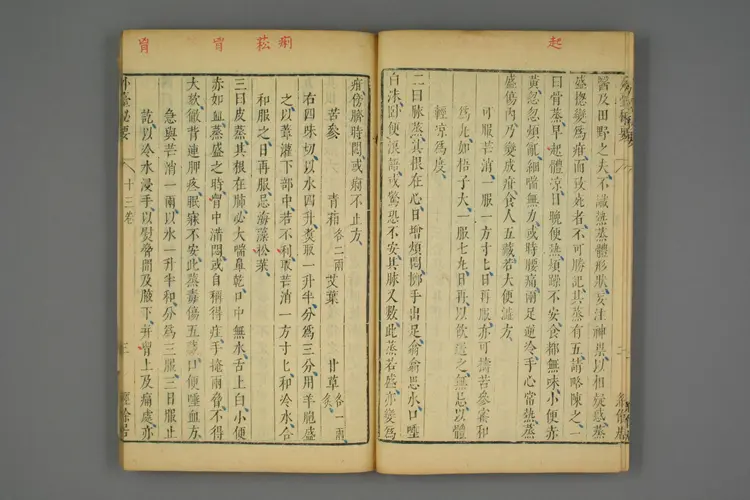 起
醫及田野之夫不識熱蒸體形狀妄注神祟以相疑惑蒸
盛總變為疳而致死者不可勝記其蒸有五請略陳之一
曰骨蒸早起體涼日晚便熱煩躁不安食都無味小便赤
黃忽忽煩亂細喘無力或時腰痛兩足逆冷手心常熱蒸
盛傷內則變成疳食人五藏若大便澁方
可服芒消一服一方寸匕日再服亦可擣苦參蜜和
為丸如梧子大一服七丸日再以飲送之無忌以體
輕涼為度
二曰脉蒸其根在心日增煩悶擲手出足翕翕思水口唾
白沫臥便浪語或驚恐不安其脉又數此蒸若盛亦變為
痢
菘
胃
胃
疳傍臍時悶或痢不止方
苦參 青葙各二兩 艾葉 甘草炙各一兩
右四味切以水四升煑取一升半分為三分用羊胞盛
之以葦灌下部中若不利取芒消一方寸匕和冷水合
和服之日再服忌海藻菘菜
三曰皮蒸其根在肺必大喘鼻乾口中無水舌上白小便
赤如血蒸盛之時胷中滿悶或自稱得疰手掩兩脅不得
大欬徹背連胛疼眠寐不安此蒸毒傷五藏口便唾血方
急與芒消一兩以水一升半和分為三服三日服止
訖以冷水浸手以熨脅間及腋下并胷上及痛處亦
外臺祕要
十三卷
三
經餘居